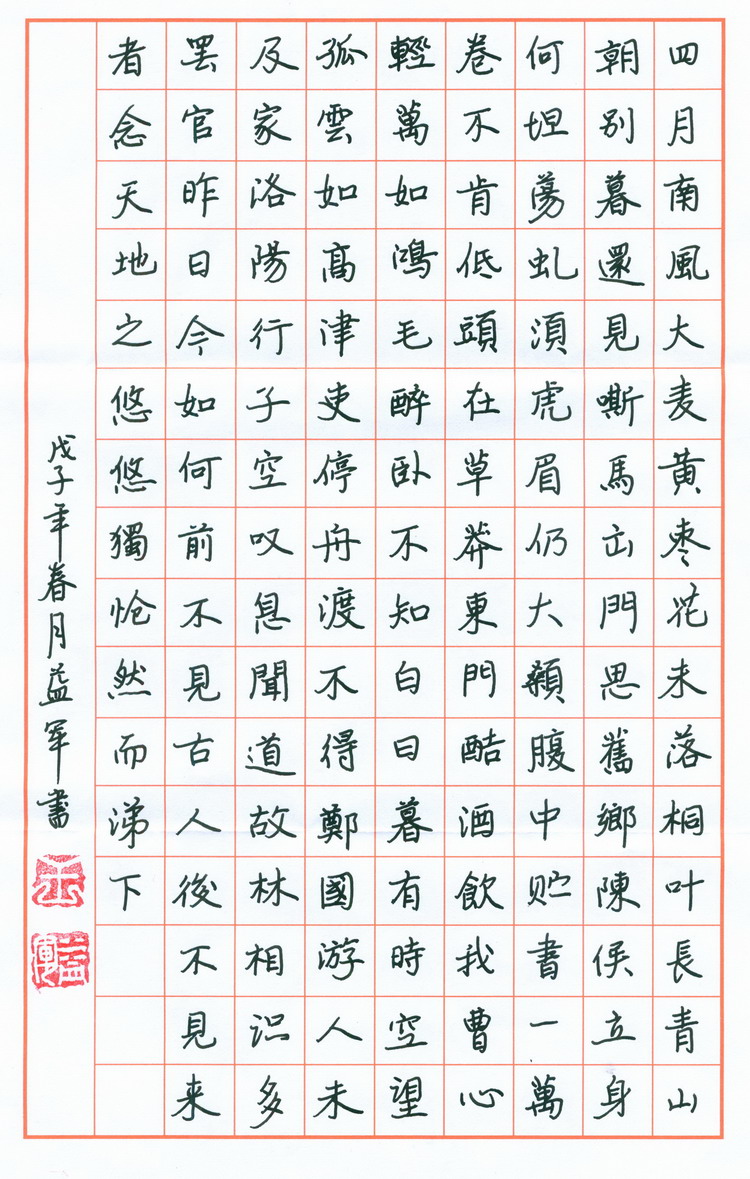 四月南風大麦黄枣花未落桐叶長青山
朝别暮還見嘶馬出門思舊鄉陳侯立身
何坦蕩虬須虎眉仍大顙腹中贮書一萬
卷不肯低頭在草莽東門酷酒飲我曹心
輕萬如鴻毛醉卧不知白日暮有時空望
孤雲如高津吏停舟渡不得鄭國游人未
及家洛陽行子空叹息聞道故林相识多
罢官昨日今如何前不見古人後不見来
者念天地之悠悠獨怆然而涕下
戊子年春月益军書